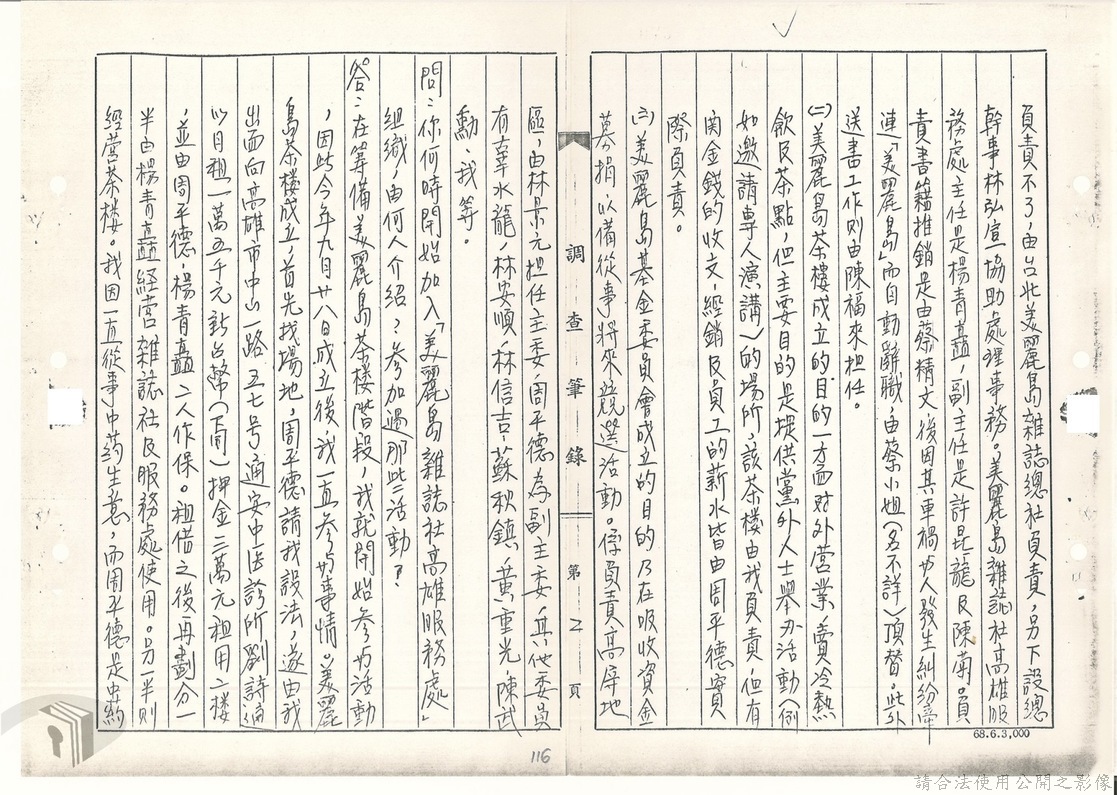 負責不了，由台北美麗島雜誌總社負責，另下設總
幹事林弘宣協助處理事務。美麗島雜誌社高雄服
務處主任是楊青矗，副主任是許昆龍及陳菊。負
責書籍推銷是由蔡精文後因其車禍與人發生糾紛牽
連「美麗島」而自動辭職，由蔡小姐（名不詳）頂替。此外
送書工作則由陳福來担任。
㈡美麗島茶樓成立的目的一方面對外營業，賣冷熱
飲及茶點，但主要目的是提供黨外人士舉办活動（例
如邀請專人演講）的場所，該茶樓由我負責，但有
関金錢的收支，經銷及員工的薪水皆由周平德實
際負責。
㈢美麗島基金委員會成立的目的乃在吸收資金
募捐以備從事將來競選活動。係負責高屏地
調查筆錄
第2頁
區，由林景元担任主委，周平德為副主委，其他委員
有辜水龍，林安順，林信吉，蘇秋鎮，黃重光，陳武
勳，我等。
問：你何時開始加入「美麗島雜誌社高雄服務處」
組織，由何人介紹？參加過那些活動？
答：在籌備美麗島茶樓階段，我就開始參与活動
，因此今年九月廿八日成立後，我一直參与事情。美麗
島茶樓成立，首先找場地，周平德請我設法，遂由我
出面向高雄市中山一路五七号通安中医診所劉詩通
以月租一萬五千元新台幣（下同）押金三萬元租用二樓
，並由周平德，楊青矗二人作保。租借之後再劃分一
半由楊青矗經营雜誌社及服務處使用。另一半則
經营茶樓。我因一直從事中药生意，而周平德是中药
68.6.3,000
116
請合法使用公開之影像